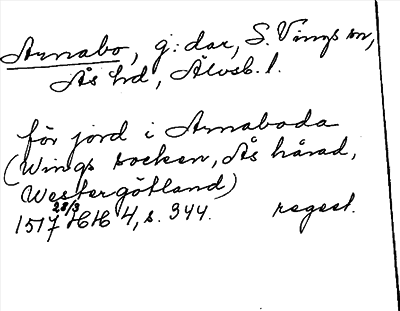 Arnabo, g:dar, S. Vings sn,
Ås hd, Älvsb. l.
för jord i Arnaboda
(Wings socken, Ås härad,
Westergötland)
1517 28/3 HH 4, s. 344. regest.